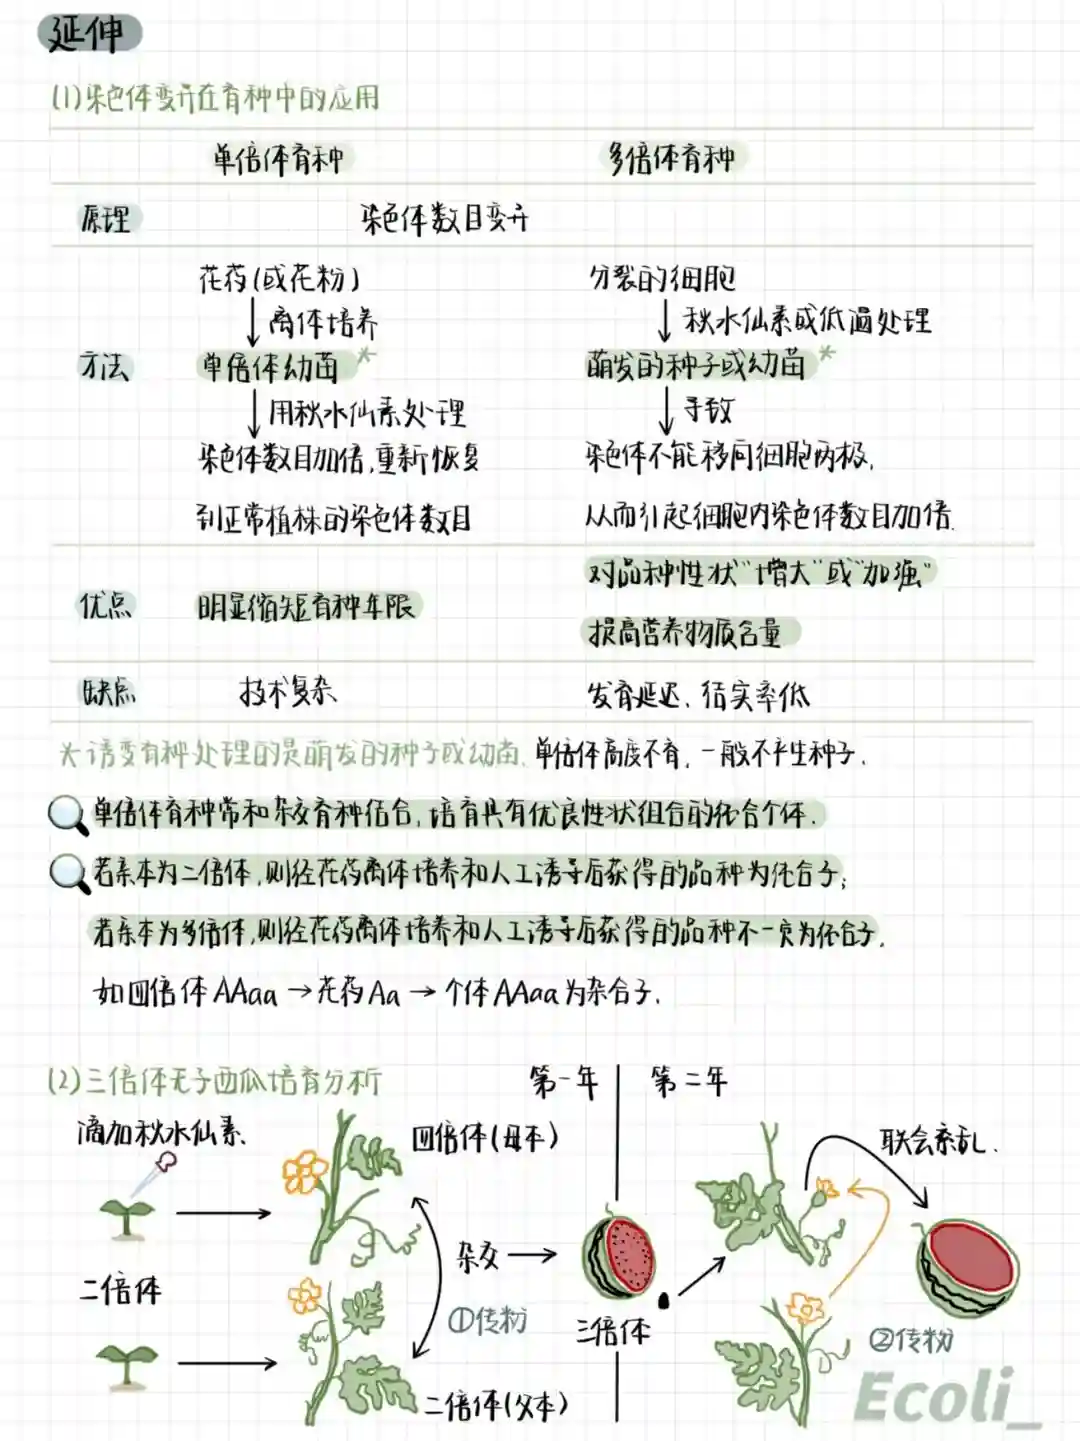 延伸
(1)染色体变异在育种中的应用
单倍体育种 多倍体育种
原理 染色体数目变异
花药(或花粉) 分裂的细胞
离体培养 秋水仙素或低温处理
方法 单倍体幼苗* 萌发的种子或幼苗*
用秋水仙素处理 导致
染色体数目加倍,重新恢复 染色体不能移向细胞两极,
到正常植株的染色体数目 从而引起细胞内染色体数目加倍.
对品种性状"增大"或"加强"
优点 明显缩短育种年限
提高营养物质含量
缺点 技术复杂 发育延迟、结实率低
*诱变育种处理的是萌发的种子或幼苗,单倍体高度不育,一般不产生种子.
单倍体育种常和杂交育种结合,培育具有优良性状组合的纯合个体.
若亲本为二倍体,则经花药离体培养和人工诱导后获得的品种为纯合子;
若亲本为多倍体,则经花药离体培养和人工诱导后获得的品种不一定为纯合子.
如四倍体AAaa→花药Aa→个体AAaa为杂合子.
(2)三倍体无子西瓜培育分析
第一年 第二年
滴加秋水仙素.
四倍体(母本)
联会紊乱.
杂交
二倍体
①传粉
三倍体
②传粉
二倍体(父本)
Ecoli_